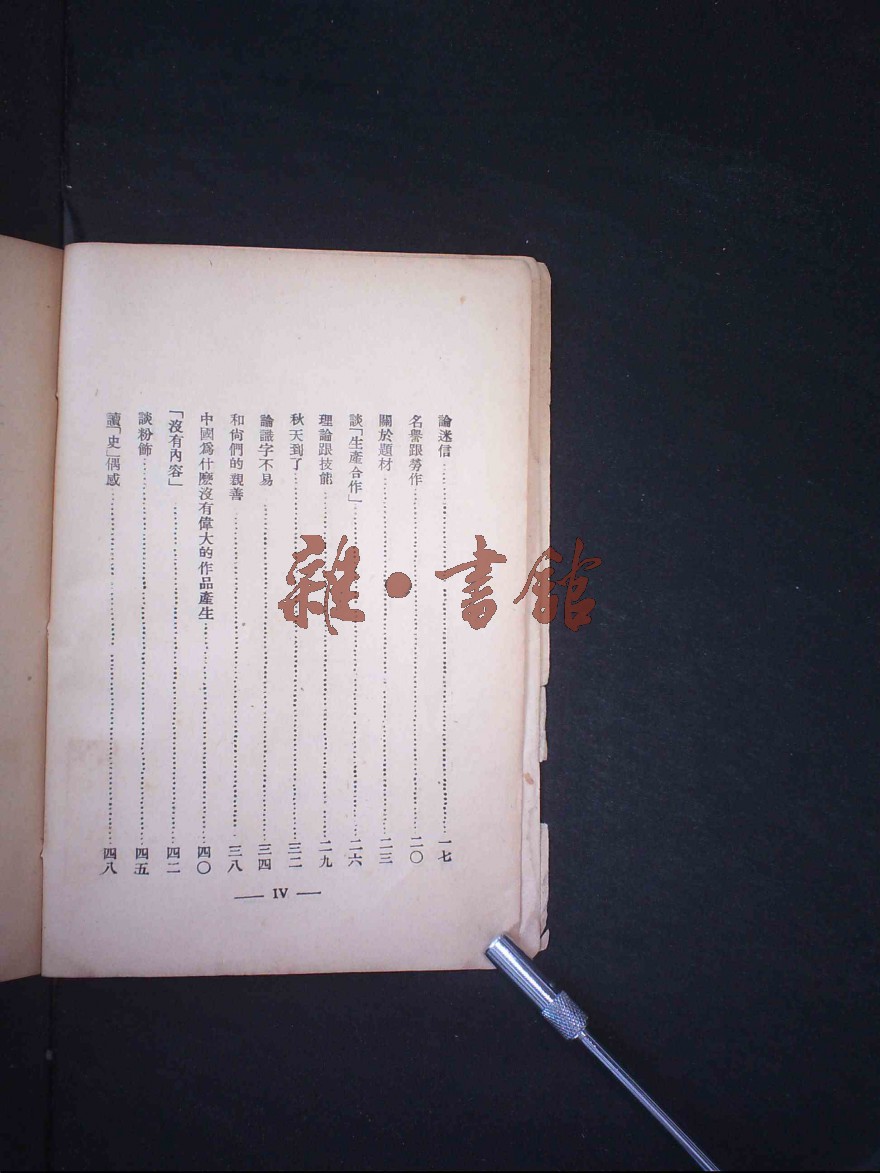 論迷信…………一七
名譽跟勞作…………二〇
關於題材…………二三
談「生產合作」…………二六
理論跟技能…………二九
秋天到了…………三二
論識字不易…………三四
和尙們的親善…………三八
中國爲什麽沒有偉大的作品產生…………四〇
「沒有內容」…………四二
談粉飾…………四五
讀「史」偶感…………四八
— IV —
雜·書館